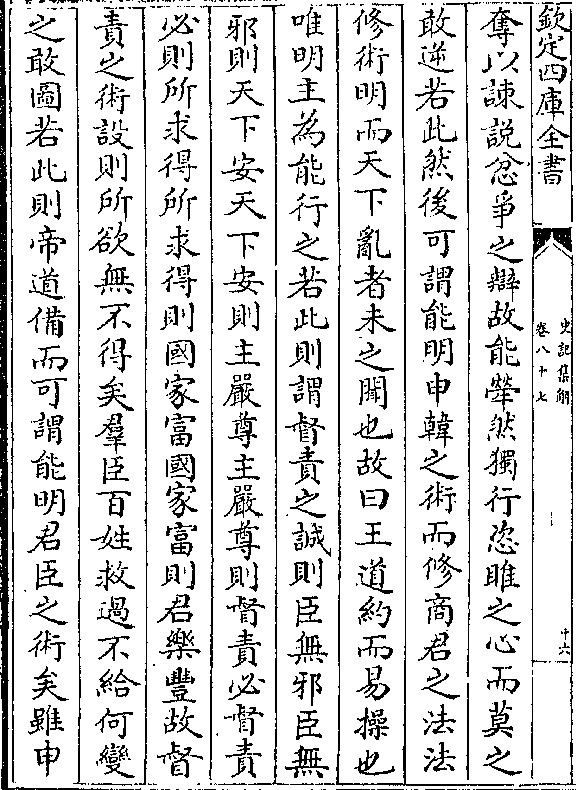 欽定四庫全書
史記集解
卷八十七
十六
奪以諫說忿爭之辯故能犖然獨行恣睢之心而莫之
敢逆若此然後可謂能明申韓之術而修商君之法法
修術明而天下亂者未之聞也故曰王道約而易操也
唯明主為能行之若此則謂督責之誠則臣無邪臣無
邪則天下安天下安則主嚴尊主嚴尊則督責必督責
必則所求得所求得則國家富國家富則君樂豐故督
責之術設則所欲無不得矣羣臣百姓救過不給何變
之敢圖若此則帝道備而可謂能明君臣之術矣雖申